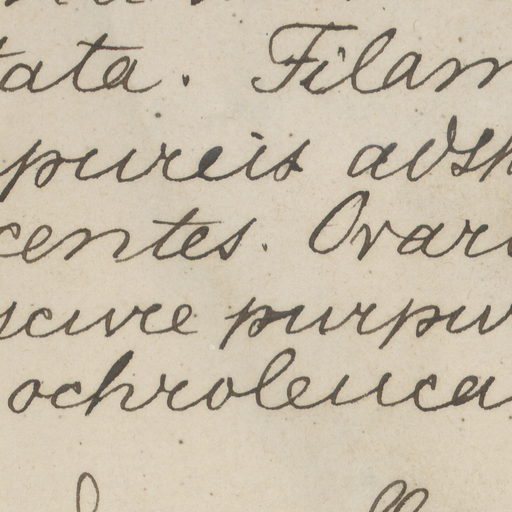 tata. Filam
pureis adsh
centes. Ovari
scure purpur
ochroleuca